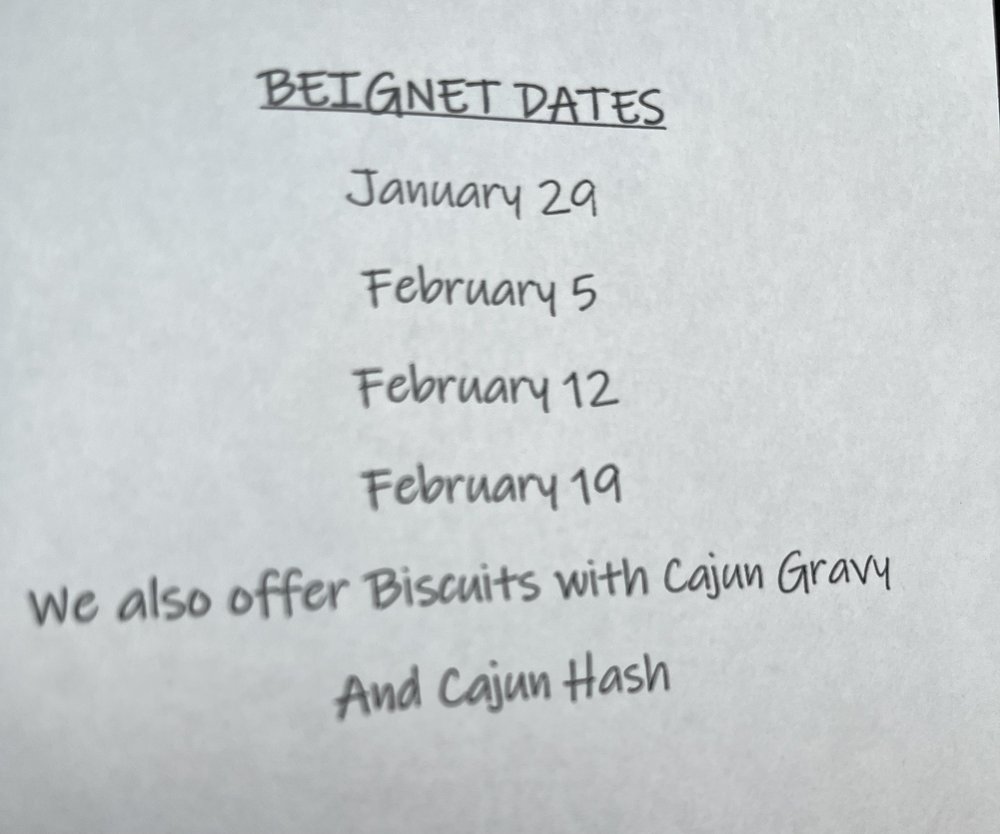 BEIGNET DATES
January 29
February 5
February 12
February 19
We also offer Biscuits with Cajun Gravy
And Cajun Hash